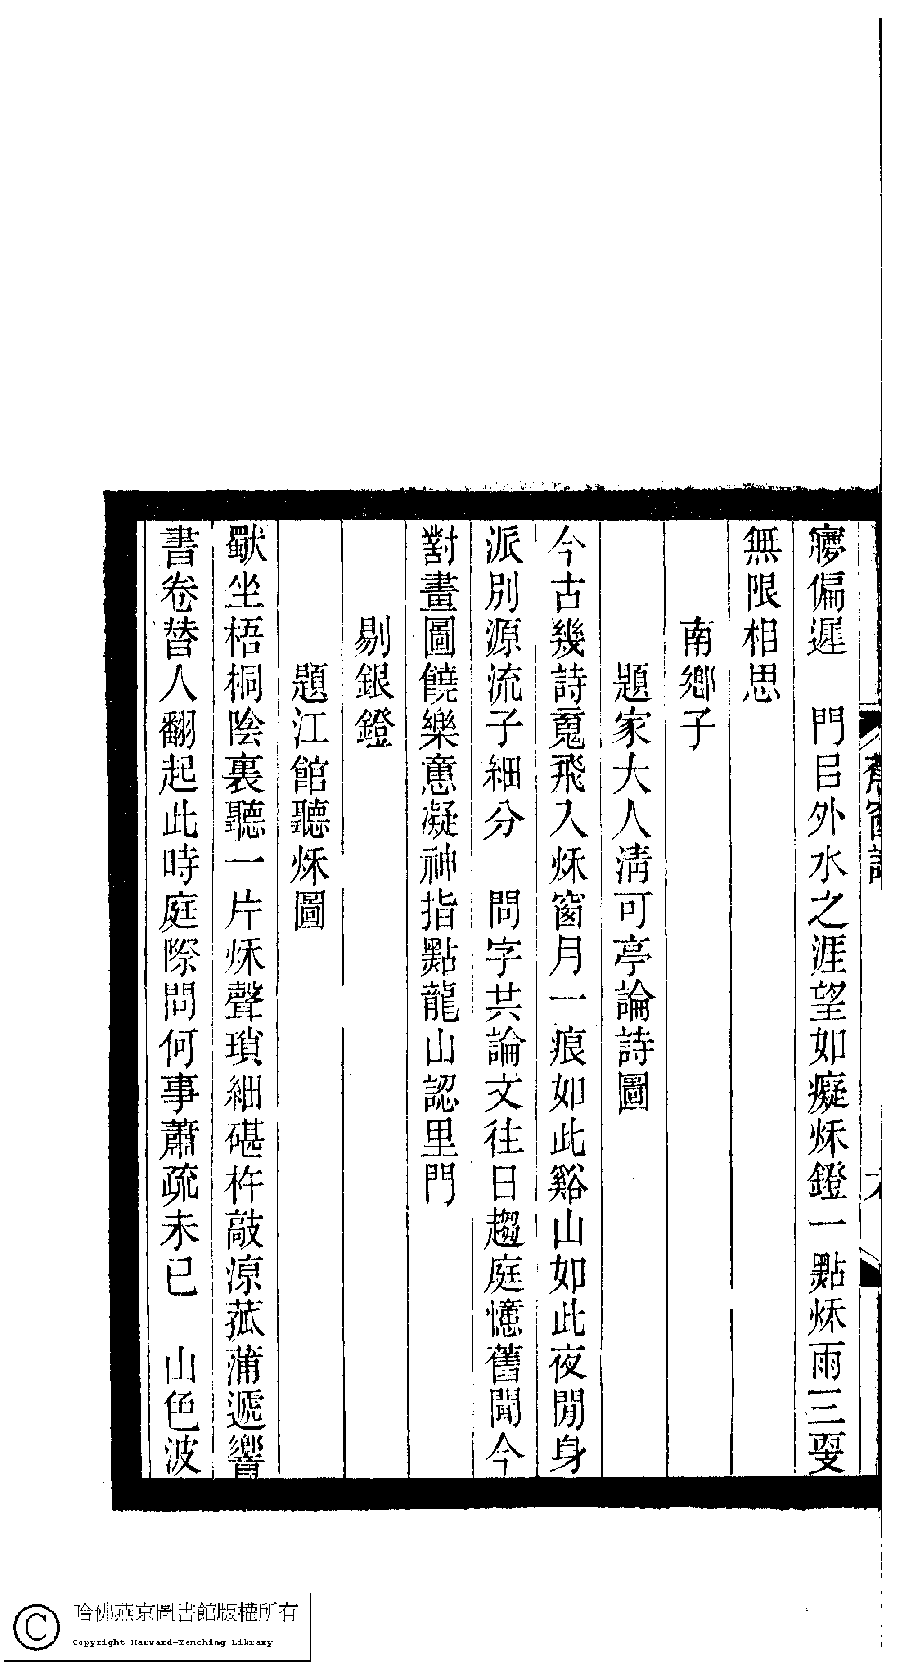 蕉窗詞
㝱偏遲　門㠯外水之涯望如癡烁鐙一點烁雨三㪅
無限相思
南鄉子
題家大人淸可亭論詩圖
今古幾詩䰟飛入烁窗月一痕如此谿山如此夜閒身
派別源流子細分　問字共論文往日趨庭憶舊聞今
對畫圖饒樂意凝神指點龍山認里門
剔銀鐙
題江館聽烁圖
獣坐梧桐陰裏聽一片烁聲瑣細碪杵敲涼菰蒲遞響
書卷替人翻起此時庭際問何事蕭疏未已　山色波
哈佛燕京圖書館版權所有
Copyright Harvard-Yenching Library